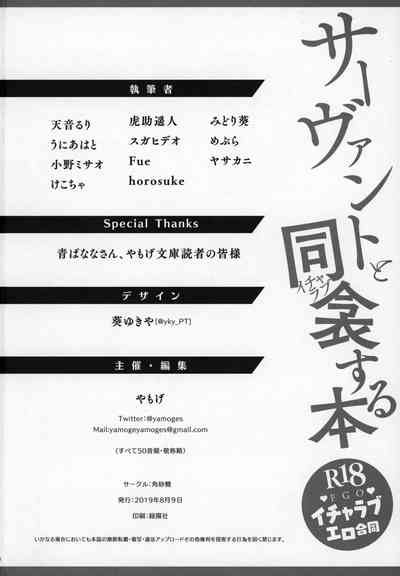 サーヴァントと
同衾する本
イチャラブ
R18
FGO
イチャラブ
エロ合同
執筆者
天音るり
虎助遥人
みどり葵
うにあはと
スガヒデオ
めぶら
小野ミサオ
Fue
ヤサカニ
けこちゃ
horosuke
Special Thanks
青ばななさん、やもげ文庫読者の皆様
デザイン
葵ゆきや[@yky_PT]
主催・編集
やもげ
Twitter:@yamoges
Mail:yamogeyamoges@gmail.com
(すべて50音順・敬称略)
サークル:角砂糖
発行:2019年8月9日
印刷:緑陽社
いかなる場合においても本誌の無断転載・複写・違法アップロードその他権利を侵害する行為を固く禁じます。